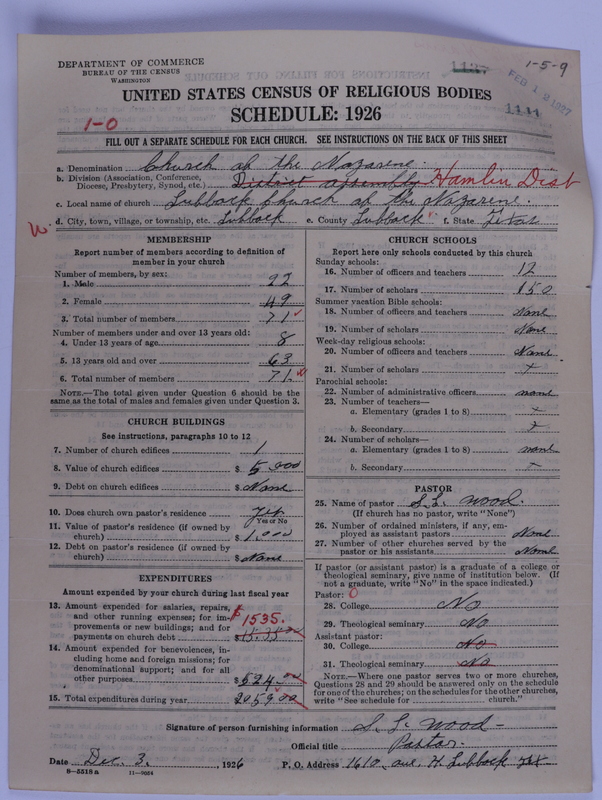 DEPARTMENT OF COMMERCE
BUREAU OF THE CENSUS
WASHINGTON
1137
1-5-9
FEB 18 1927
1111
UNITED STATES CENSUS OF RELIGIOUS BODIES
SCHEDULE: 1926
1-0
FILL OUT A SEPARATE SCHEDULE FOR EACH CHURCH. SEE INSTRUCTIONS ON THE BACK OF THIS SHEET
a. Denomination Church of the Nazarene.
b. Division (Association, Conference, Diocese, Presbytery, Synod, etc.) District assembly Hamlin Dist
c. Local name of church Lubbock Church of the Nazarene.
d. City, town, village, or township, etc. Lubbock e. County Lubbock f. State Texas
MEMBERSHIP
Report number of members according to definition of
member in your church
Number of members, by sex:
1. Male 22
2. Female 49
3. Total number of members 71
Number of members under and over 13 years old:
4. Under 13 years of age 8
5. 13 years old and over 63
6. Total number of members 71
NOTE.—The total given under Question 6 should be
same as the total of males and females given under Question 3.
CHURCH BUILDINGS
See instructions, paragraphs 10 to 12
7. Number of church edifices 1
8. Value of church edifices $ 5,000
9. Debt on church edifices $ None
10. Does church own pastor's residence? Yes
Yes or No
11. Value of pastor's residence (if owned by
church) $ 1,000
12. Debt on pastor's residence (if owned by
church) $ None
EXPENDITURES
Amount expended by your church during last fiscal year
13. Amount expended for salaries, repairs,
and other running expenses; for im-
provements or new buildings; and for
payments on church debt $ 1535.
14. Amount expended for benevolences, in-
cluding home and foreign missions; for
denominational support; and for all
other purposes $ 524.00
15. Total expenditures during year $ 2059.00
CHURCH SCHOOLS
Report here only schools conducted by this church
Sunday schools:
16. Number of officers and teachers 12
17. Number of scholars 150
Summer vacation Bible schools:
18. Number of officers and teachers None
19. Number of scholars None
Week-day religious schools:
20. Number of officers and teachers None
21. Number of scholars
Parochial schools:
22. Number of administrative officers none
23. Number of teachers—
a. Elementary (grades 1 to 8)
b. Secondary
24. Number of scholars—
a. Elementary (grades 1 to 8) none
b. Secondary
PASTOR
25. Name of pastor S. L. Wood.
(If church has no pastor, write "None")
26. Number of ordained ministers, if any, em-
ployed as assistant pastors None
27. Number of other churches served by the
pastor or his assistants None
If pastor (or assistant pastor) is a graduate of a college or
theological seminary, give name of institution below. (If
not a graduate, write "No" in the space indicated.)
Pastor: 0
28. College No
29. Theological seminary No
Assistant pastor:
30. College No
31. Theological seminary No
NOTE.—Where one pastor serves two or more churches,
Questions 28 and 29 should be answered only on the schedule
for one of the churches; on the schedules for the other churches,
write "See schedule for church."
Signature of person furnishing information S. L. Wood
Official title Pastor.
Date Dec. 3. , 1926 P. O. Address 1610. ave. H. Lubbock Tex
8—5518a 11—9064